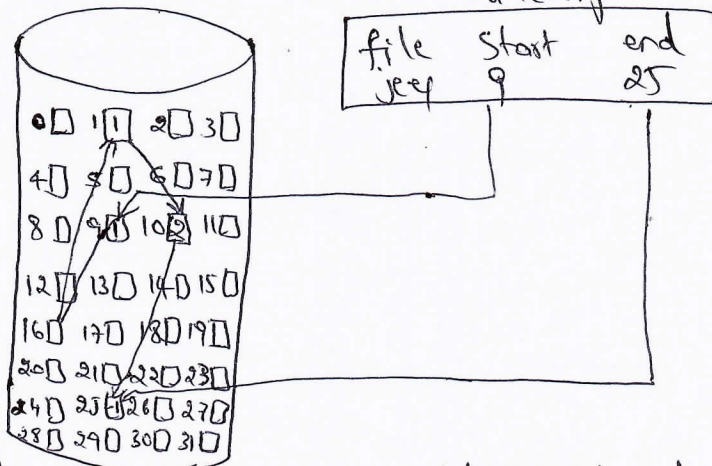 file start end
jeep 9 25
0 1 1 2 3
4 5 6 7
8 9 1 10 2 11
12 13 14 15
16 17 18 19
20 21 22 23
24 25 -1 26 27
28 29 30 31